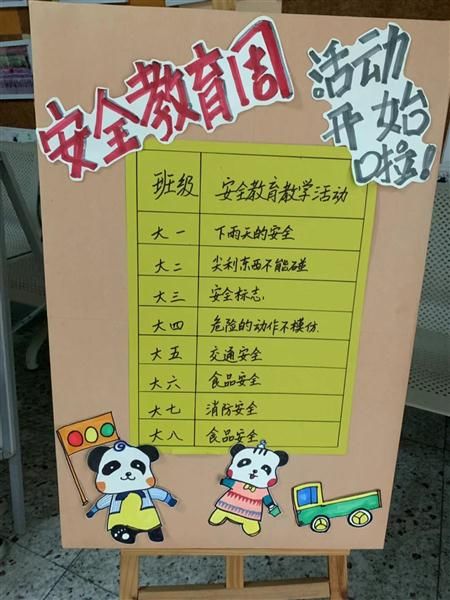 安全教育周
活动
开始
啦!
班级 安全教育教学活动
大一 下雨天的安全
大二 尖利东西不能碰
大三 安全标志
大四 危险的动作不模仿
大五 交通安全
大六 食品安全
大七 消防安全
大八 食品安全